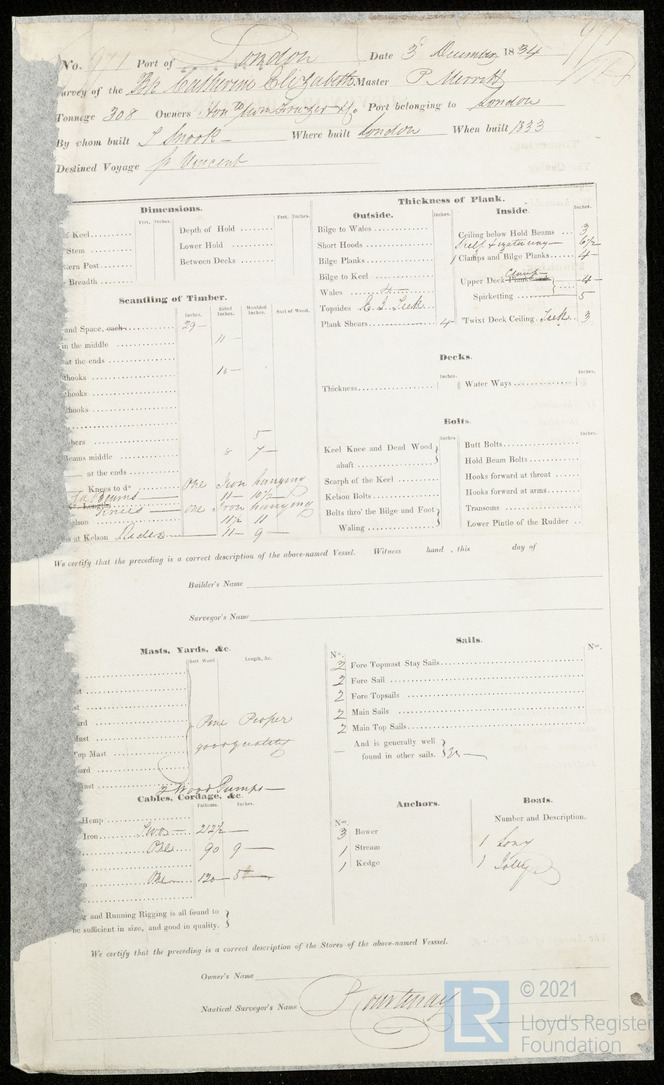 No. 971 Port of London Date 3 December 1834
Survey of the Bk Catherine Elizabeth Master P. Merrett
Tonnage 308 Owners Port belonging to London
By whom built Snook Where built London When built 1833
Destined Voyage St Vincent
Dimensions.
Feet. Inches. Feet. Inches.
of Keel
Stem
tern Post
Breadth
Depth of Hold
Lower Hold
Between Decks
Scantling of Timber.
Inches. Sided Inches. Moulded Inches. Sort of Wood.
and Space, each 29
in the middle 11
at the ends
hooks 10
hooks
hooks
bers 5
Beams middle 8 7
at the ends
Knees to do One Iron hanging
Beams 11 10½
Knees one Iron hanging
elson 11½ 11
s at Kelson Rider 11 9
Thickness of Plank.
Outside. Inches.
Bilge to Wales
Short Hoods
Bilge Planks
Bilge to Keel
Wales 4
Topsides E. I. Teek
Plank Shears 4
Inside. Inches.
Ceiling below Hold Beams 3
Shelf & waterway 6½
Clamps and Bilge Planks 4
Upper Deck Clamp 4
Spirketting 5
'Twixt Deck Ceiling Teek 3
Decks.
Inches. Inches.
Thickness
Water Ways
Bolts.
Inches. Inches.
Keel Knee and Dead Wood
abaft
Scarph of the Keel
Kelson Bolts
Bolts thro' the Bilge and Foot
Waling
Butt Bolts
Hold Beam Bolts
Hooks forward at throat
Hooks forward at arms
Transoms
Lower Pintle of the Rudder
We certify that the preceding is a correct description of the above-named Vessel. Witness hand, this day of
Builder's Name
Surveyor's Name
Masts, Yards, &c.
Length, &c.
Pine Proper
good quality
op Mast
2 Wood Pumps
Cables, Cordage, &c.
Fathoms. Inches.
Hemp
Iron Two 212½
One 90 9
One 120 5½
g and Running Rigging is all found to
be sufficient in size, and good in quality.
Sails.
No. No.
2 Fore Topmast Stay Sails
2 Fore Sail
2 Fore Topsails
2 Main Sails
2 Main Top Sails
And is generally well
found in other sails.
Anchors.
No.
3 Bower
1 Stream
1 Kedge
Boats.
Number and Description.
1 Long
1 Jolly
We certify that the preceding is a correct description of the Stores of the above-named Vessel.
Owner's Name
Nautical Surveyor's Name Courtenay
LR
© 2021
Lloyd's Register
Foundation